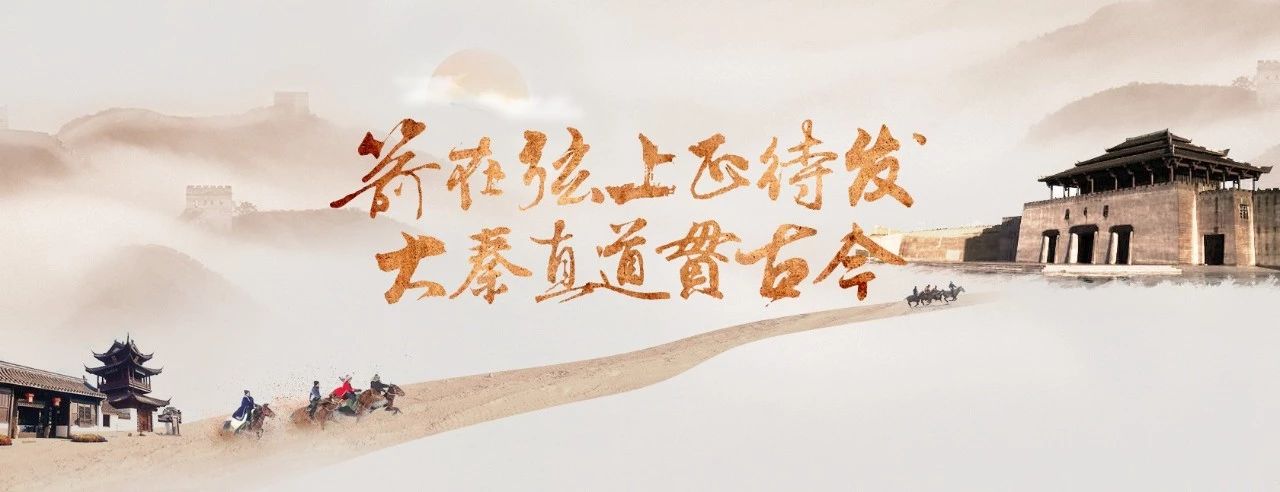 箭在弦上正待发
大秦直道貫古今